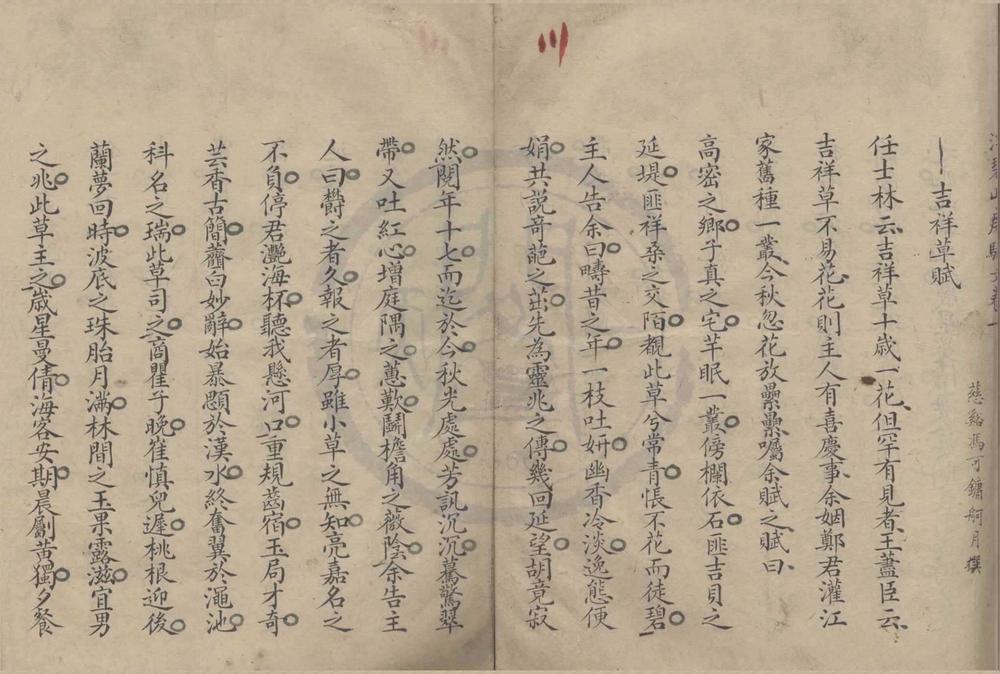 慈谿馮可鏞舸月撰
吉祥草賦
任士林云吉祥草十歲一花但罕有見者王藎臣云
吉祥草不易花花則主人有喜慶事余姻鄭君灌江
家舊種一叢今秋忽花放纍纍囑余賦之賦曰
高密之鄉子真之宅芊眠一叢傍欄依石匪吉貝之
延堤匪祥桑之交陌覩此草兮常青悵不花而徒碧
主人告余曰疇昔之年一枝吐妍幽香冷淡逸態便
娟共説奇葩之茁先為靈兆之傳幾回延望胡竟寂
然閱年十七而迄於今秋光處處芳訊沉沉驀驚翠
帶又吐紅心增庭隅之蕙歎鬭檐角之薇陰余告主
人曰欎之者久報之者厚雖小草之無知亮嘉名之
不負停君灧海杯聽我懸河口重規齒宿玉局才奇
芸香古簡虀臼妙辭始暴顋於漢水終奮翼於澠池
科名之瑞此草司之商瞿子晚崔慎兒遲桃根迎後
蘭夢回時波底之珠胎月滿林間之玉果露滋宜男
之兆此草主之歲星曼倩海客安期晨劚黃獨夕餐